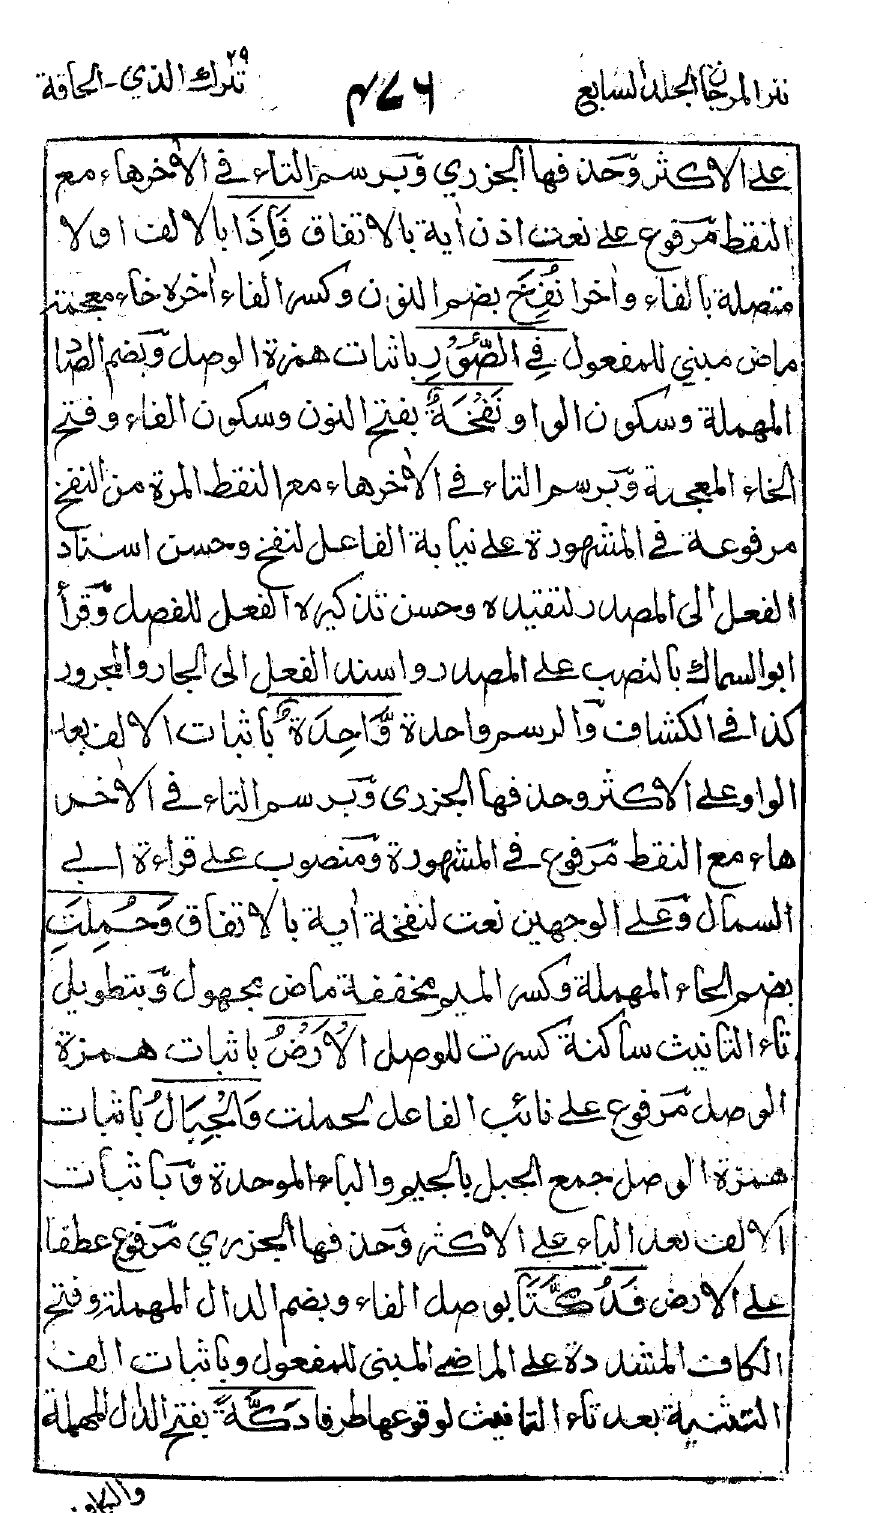 نثر المرجان المجلد السابع
٤٧٦
تبارك الذي ٢٩ - الحاقة
على الاكثر وّحذفها الجزري وّبرسم التاء في الاٰخرهاء مع
النقط مّرفوع على نعت اذن اٰية بالاتفاق فَاِذَا بالالف اولا
متصلة بالفاء واٰخرا نُفِخَ بضم النون وكسر الفاء اٰخره خاء معجمة
ماض مبني للمفعول فِي الصُّوْرِ باثبات همزة الوصل وّبضم الصاد
المهملة وسكون الواو نَفْخَةٌ بفتح النون وسكون الفاء وفتح
الخاء المعجمة وّبرسم التاء في الاٰخرهاء مع النقط المرة من النفخ
مرفوعة في المشهورة على نيابة الفاعل لنفخ وحسن اسناد
الفعل الى المصدر لتقيده وحسن تذكيره الفعل للفصل وّقرأ
ابو السماك بالنصب على المصدر واسند الفعل الى الجار والمجرور
كذا في الكشاف وّالرسم واحدة وَّاحِدَةٌ باثبات الالف بعد
الواو على الاكثر وحذفها الجزرى وّبرسم التاء في الاٰخر
هاء مع النقط مّرفوع في المشهورة وّمنصوب على قراءة ابي
السمال وّعلى الوجهين نعت لنفخة اٰية بالاتفاق وَحُمِلَتِ
بضم الحاء المهملة وكسر الميم مخففة ماض مجهول وّبتطويل
تاء التانيث ساكنة كسرت للوصل الْاَرْضُ باثبات همزة
الوصل مّرفوع على نائب الفاعل لحملت وَالْجِبَالُ باثبات
همزة الوصل جمع الجبل بالجيم والباء الموحدة وّباثبات
الالف بعد الباء على الاكثر وّحذفها الجزري مّرفوع عطفا
على الارض فَدُكَّتَا بوصل الفاء وبضم الدال المهملة وفتح
الكاف المشددة على الماضي المبني للمفعول وباثبات الف
التثنية بعد تاء التانيث لوقوعها طرفا دَكَّةً بفتح الدال المهملة
والكاف